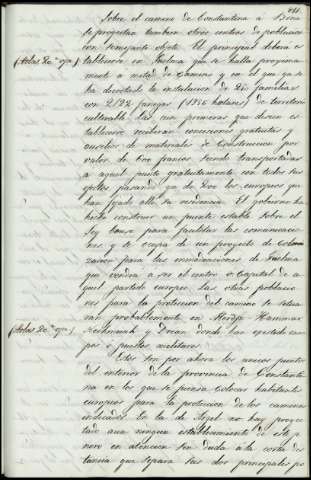 Sobre el camino de Constantina a Bona
se proyectan tambien otros centros de poblacion
con semejante objeto. El principal debera es
(Atlas Da. nº ) tablecerse en Guelma que se halla proximamen
a mitad de camino y en el que ya se
ha decretado la instalacion de 250 familias
con 2132 fanegas (1356 hectares) de territorio
cultivable. Las cien primeras que deseen es
tablecerse recibiran concesiones gratuitas y
auxilios de materiales de construccion por
valor de 600 francos siendo transportadas
a aquel punto gratuitamente con todos sus
efectos pasando ya de 200 los europeos que
han fijado alli su residencia. El gobierno ha
hecho construir un puente estable sobre el
Sey bouse para facilitar las comunicacio
nes y se ocupa de un proyecto de coloni
zacion para las inmediaciones de Guelma
que vendra a ser el centro o capital de a
quel partido europeo. Las otras poblacio
nes para la proteccion del camino se situa
ran probablemente en Medjez Hammar
(Atlas Da. nº ) Nechmeyah y Drean donde han existido cam
pos o puestos militares.
Estos son por ahora los unicos puntos
del interior de la provincia de Constanti
na en los que se piensa colocar habitantes
europeos para la proteccion de los caminos
indicados. En la de Argel no hay proyec
tado aun ninguno establecimiento de este ge
nero en atencion sin duda á la corta dis
tancia que separa sus dos principales po